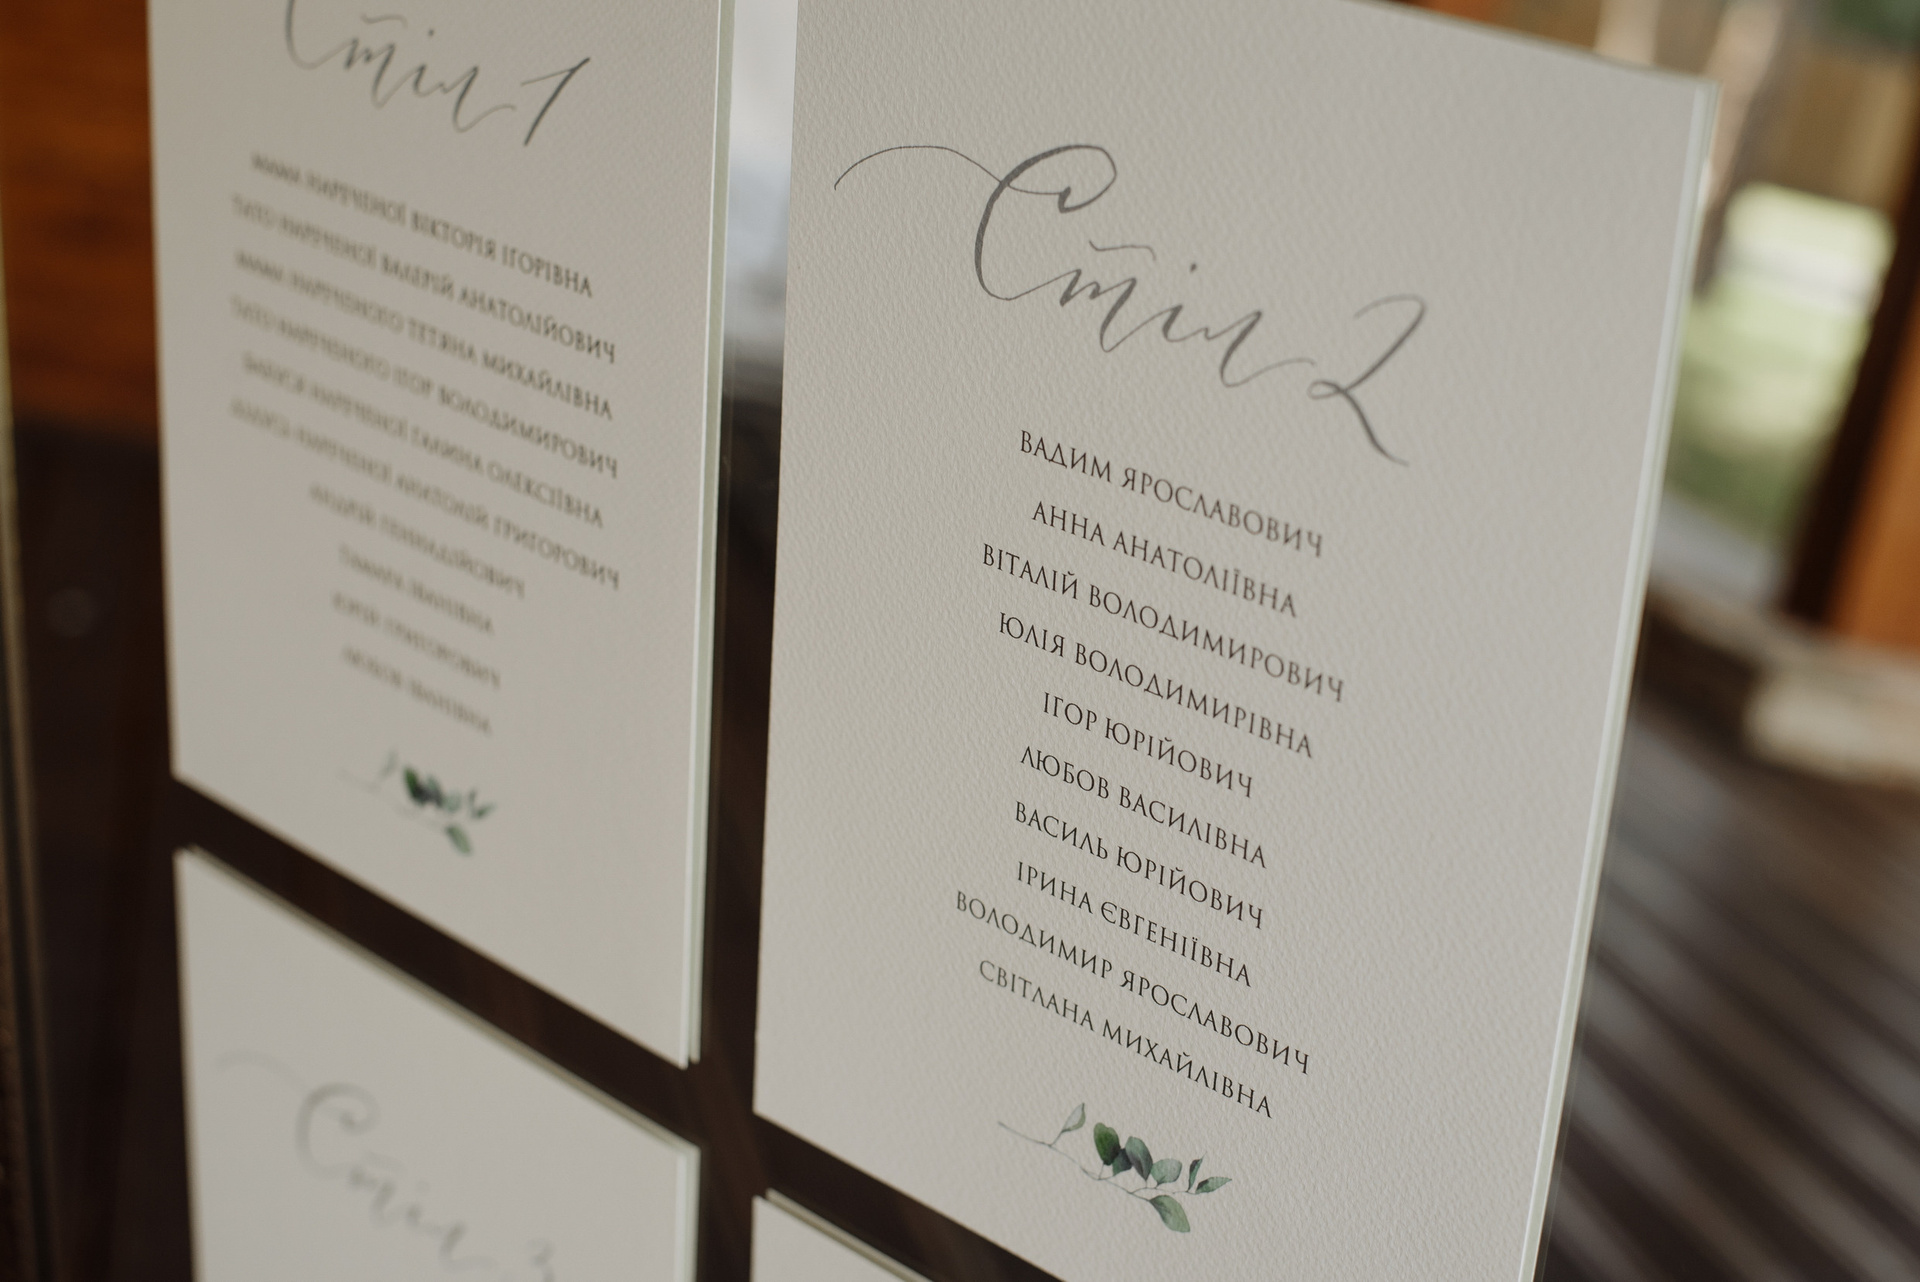 Стіл 1
МАМА НАРЕЧЕНОЇ ВІКТОРІЯ ІГОРІВНА
ТАТО НАРЕЧЕНОЇ ВАЛЕРІЙ АНАТОЛІЙОВИЧ
МАМА НАРЕЧЕНОГО ТЕТЯНА МИХАЙЛІВНА
ТАТО НАРЕЧЕНОГО ІГОР ВОЛОДИМИРОВИЧ
БАБУСЯ НАРЕЧЕНОЇ ГАЛИНА ОЛЕКСІЇВНА
ДІДУСЬ НАРЕЧЕНОЇ АНАТОЛІЙ ГРИГОРОВИЧ
АНДРІЙ ГЕННАДІЙОВИЧ
ТАМАРА ІВАНІВНА
ЮРІЙ ГРИГОРОВИЧ
ЛЮБОВ ІВАНІВНА
Стіл 2
ВАДИМ ЯРОСЛАВОВИЧ
АННА АНАТОЛІЇВНА
ВІТАЛІЙ ВОЛОДИМИРОВИЧ
ЮЛІЯ ВОЛОДИМИРІВНА
ІГОР ЮРІЙОВИЧ
ЛЮБОВ ВАСИЛІВНА
ВАСИЛЬ ЮРІЙОВИЧ
ІРИНА ЄВГЕНІЇВНА
ВОЛОДИМИР ЯРОСЛАВОВИЧ
СВІТЛАНА МИХАЙЛІВНА
Стіл 3